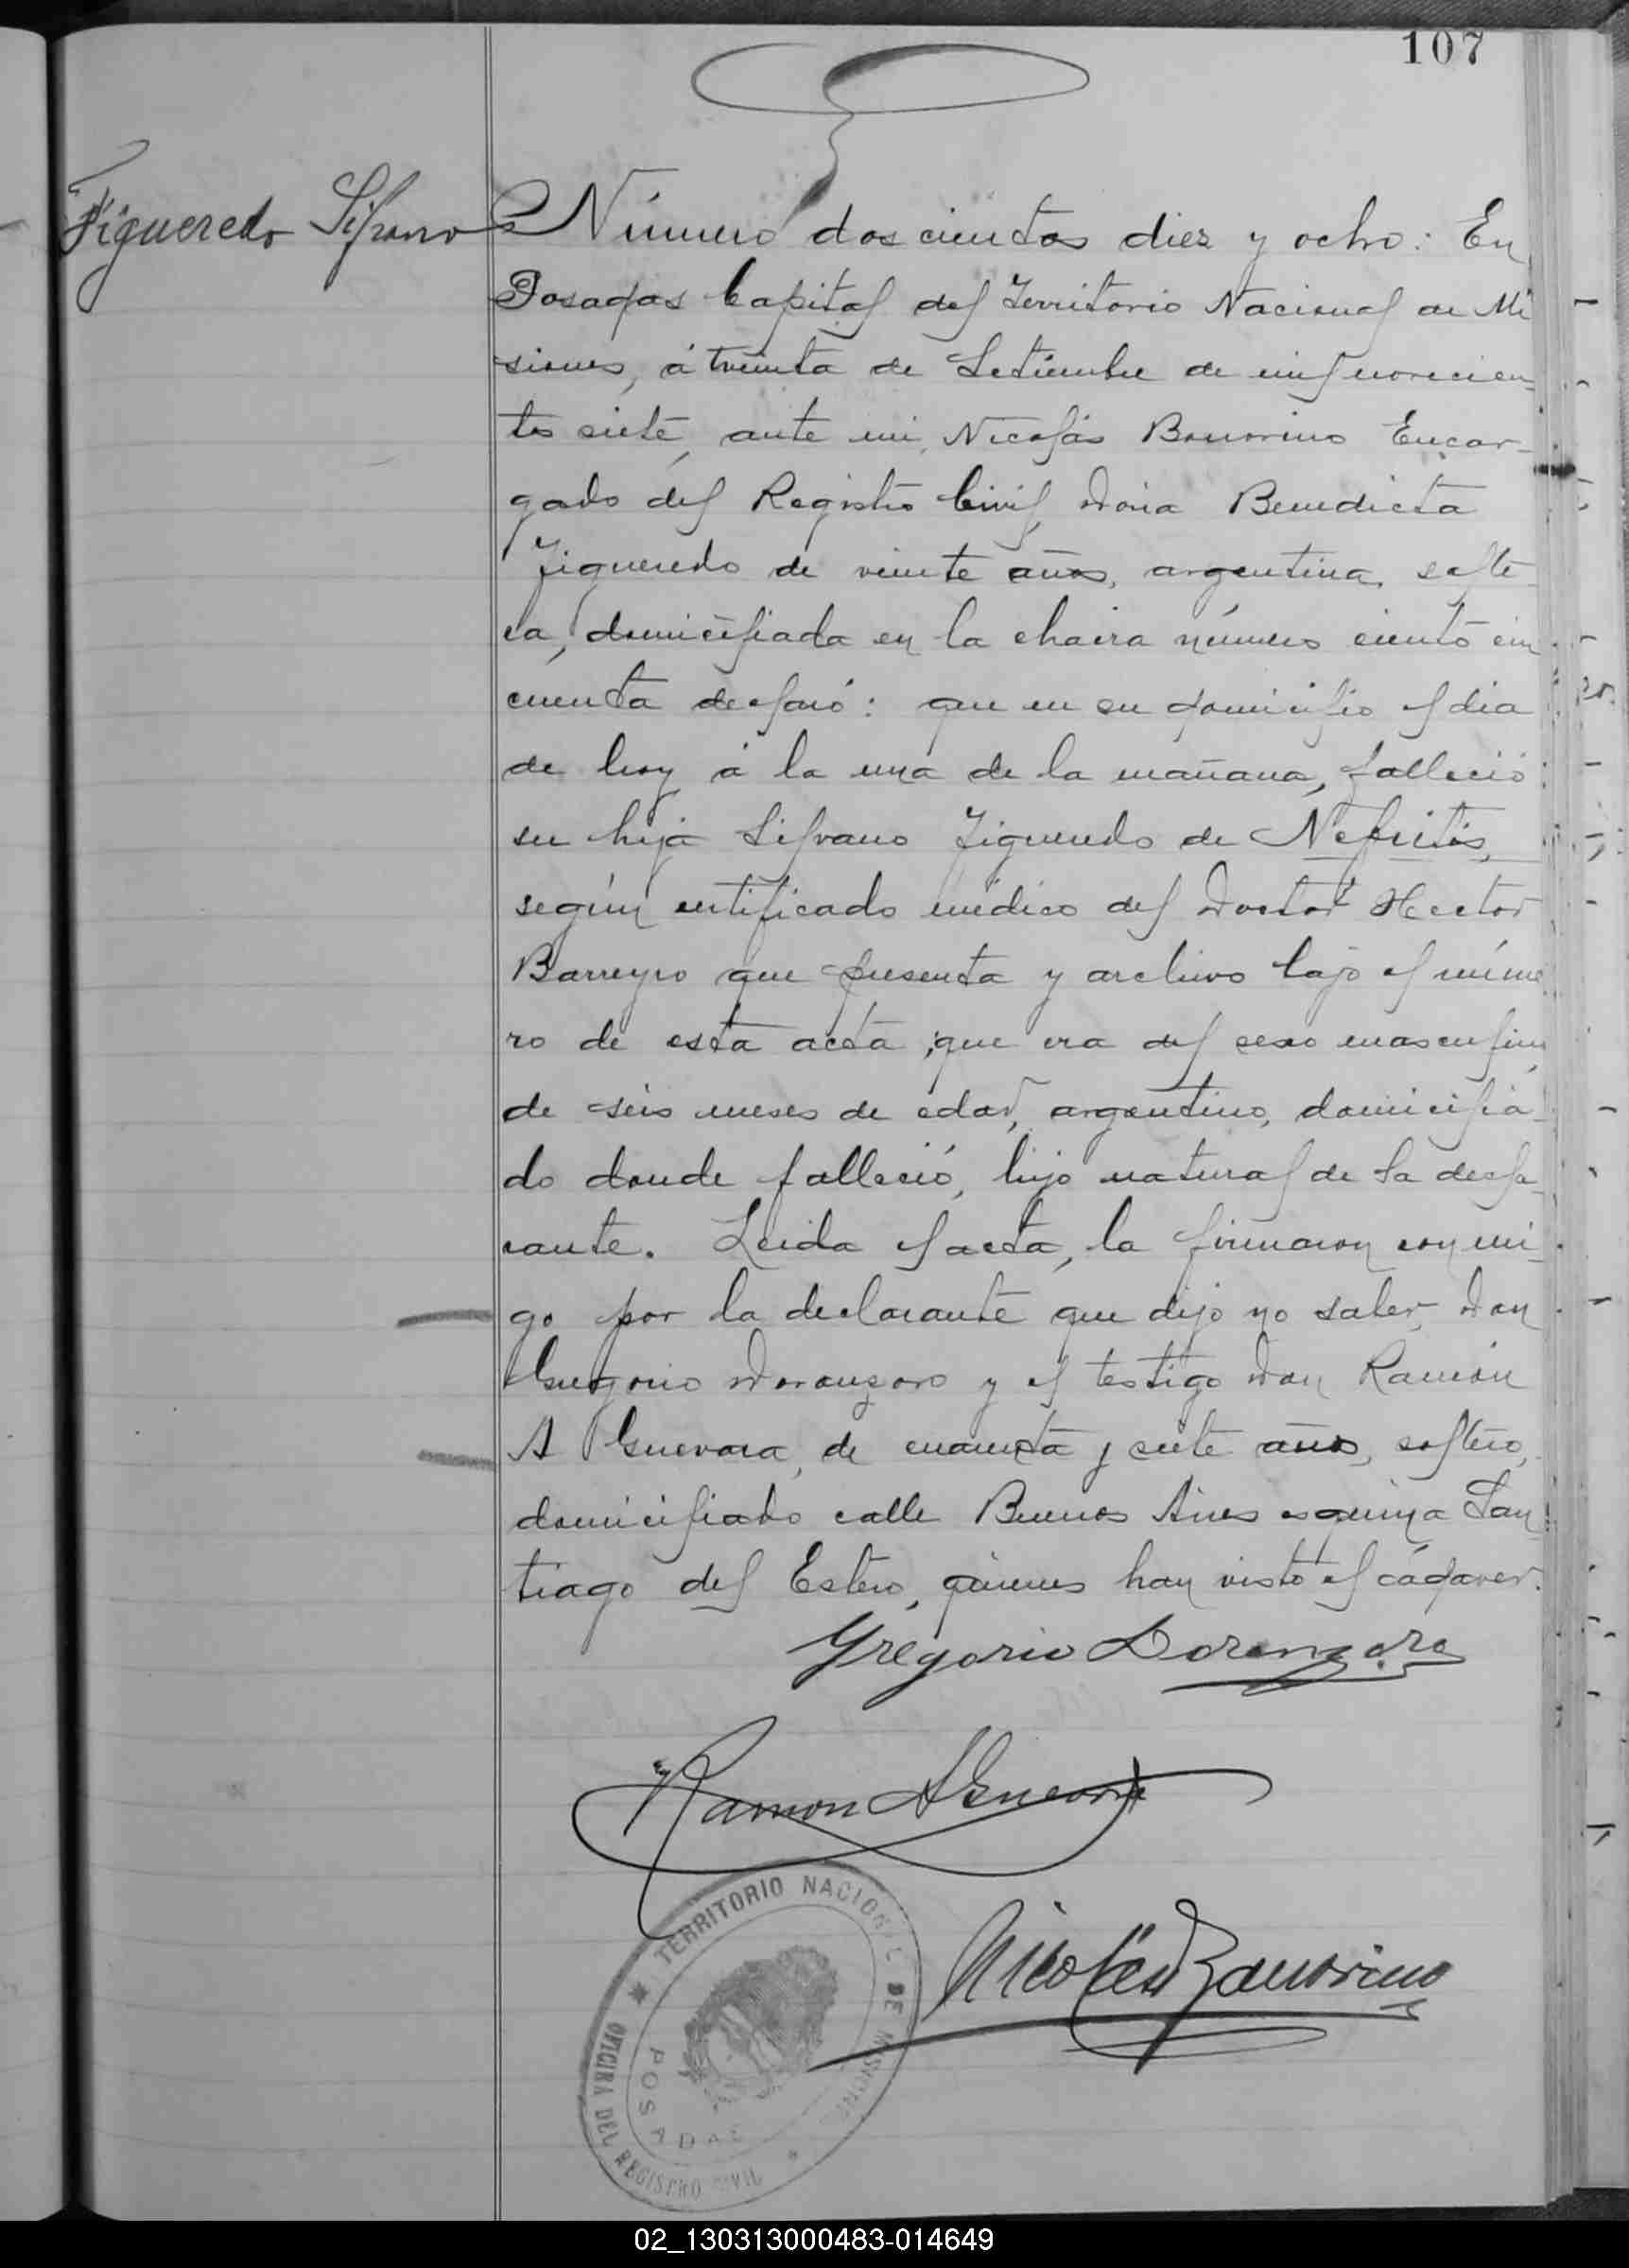 107
Figueredo Silvano
Número doscientos diez y ocho: En
Posadas Capital del Territorio Nacional de Mi
siones, á treinta de Setiembre de mil novecien-
tos siete, ante mi, Nicolás Bonorino Encar-
gado del Registro Civil, Doña Benedicta
Figueredo de veinte años, argentina, solte-
ra, domiciliada en la chacra número ciento cin
cuenta declaró: que en su domicilio el dia
de hoy á la una de la mañana, falleció
su hijo Silvano Figueredo de Nefritis,
según certificado médico del Doctor Hector
Barreyro que presenta y archivo bajo el núme
ro de esta acta; que era del sexo masculino
de seis meses de edad, argentino, domicilia-
do donde falleció, hijo natural de la decla-
rante. Leida el acta, la firmaron conmi-
go por la declarante que dijo no saber, Don
Gregorio Doronzoro y el testigo Don Ramón
A Guevara, de cuarenta y siete años, soltero,
domiciliado calle Buenos Aires esquina San
tiago del Estero, quienes han visto el cádaver.
Gregorio Doronzoro
Ramon A Guevara
Nicolás Bonorino
TERRITORIO NACIONAL DE MISIONES
OFICINA DEL REGISTRO CIVIL
POSADAS
02_130313000483-014649